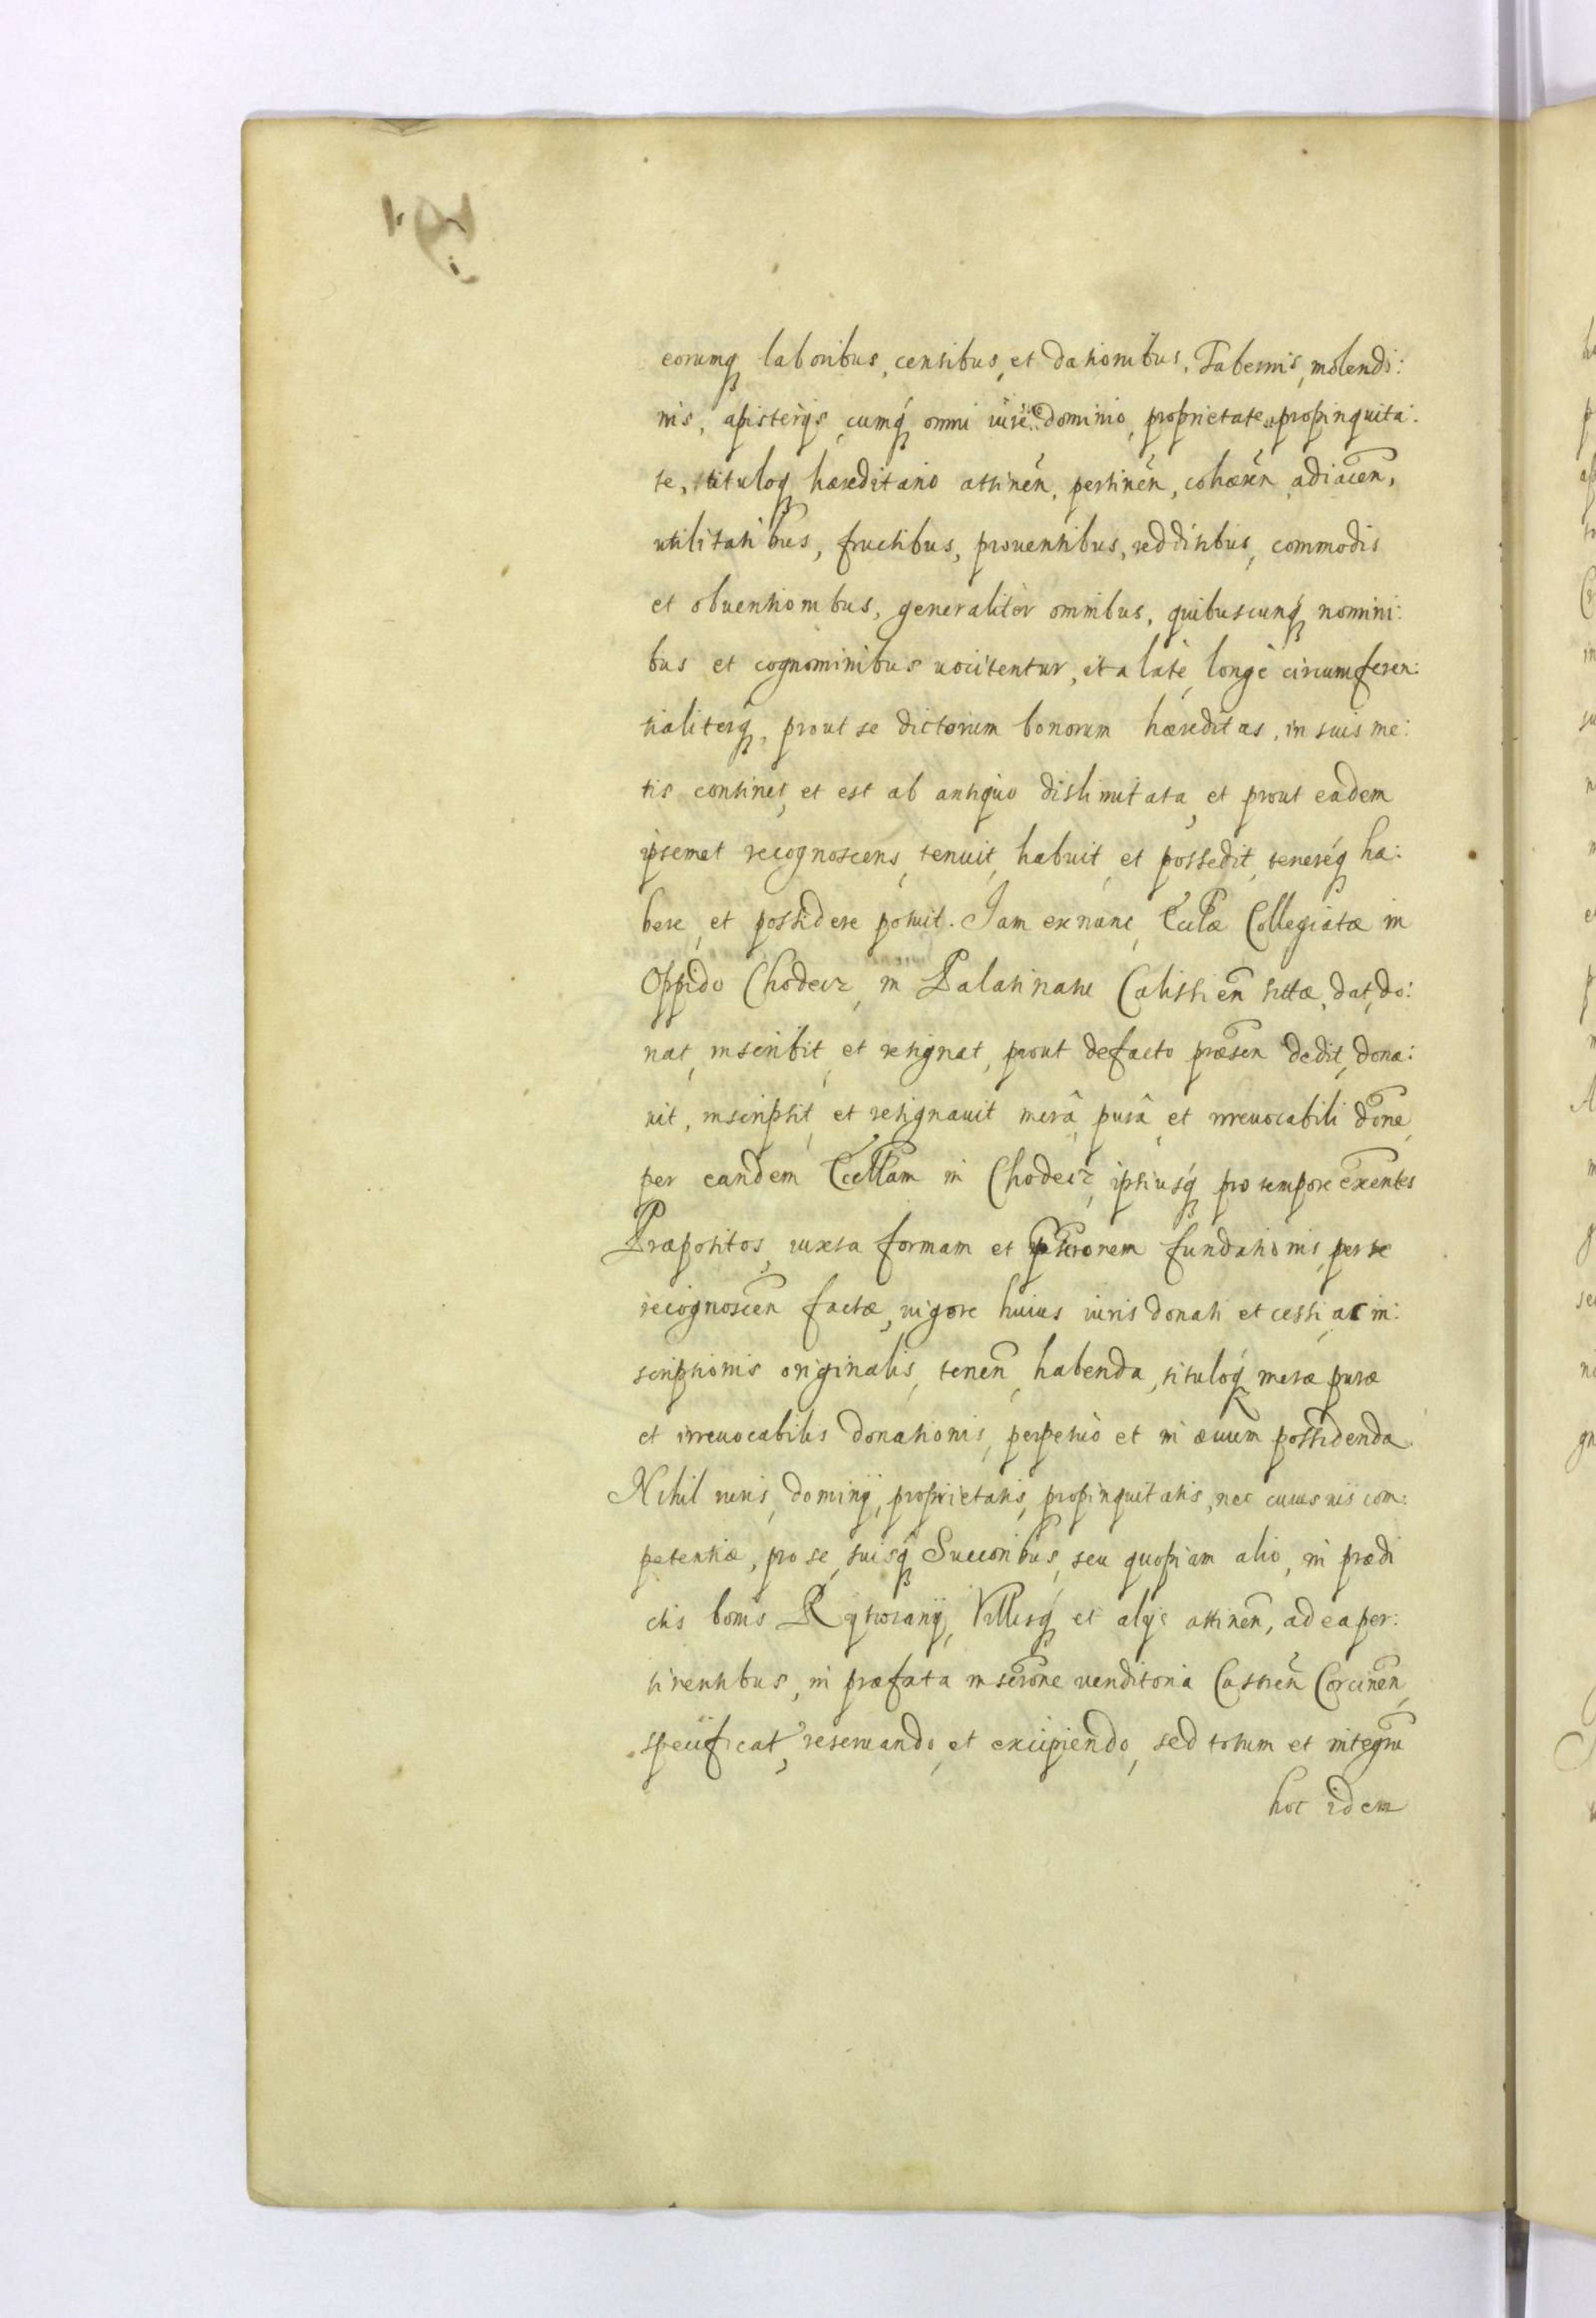 eorumq laboribus, censibus, et dationibus, Tabernis, molendi:
nis, apisterijs, cumq́ omni iure dominio, proprietate, propinquita:
te, tituloq hæreditario attineñ, pertineñ, cohæreñ, adiaceñ,
utilitatibus, fructibus, prouentibus, redditibus, commodis
et obuentionibus, generalitèr omnibus, quibuscunq́ nomini:
bus et cognominibus uocitentur, ita latè, longè circumferen:
tialiterq́, prout se dictorum bonorum hæreditas, in suis me:
tis continet, et est ab antiquo distlimitata, et prout eadem
ipsemet recognoscens, tenuit, habuit, et possedit, tenereq́ ha:
bere, et possidere potuit. Jam ex nunc, Ecclæ Collegiatæ in
Oppido Chodecz, in Palatinatu Calissien̄ sitæ, dat, do:
nat, inscribit, et resignat, prout de facto præsen̄ dedit, dona:
uit, inscripsit, et resignauit merâ, purâ, et irreuocabili done,
per eandem Ecclam in Chodecz, ipsiusq́ pro tempore exentes
Præpositos, iuxta formam et fundationis, per se
recognoscen̄ factæ, uigore huius iuris donati et cessi, ac in:
scriptionis originalis, tenen̄, habenda, tituloq́ meræ puræ
et irreuocabilis donationis, perpetuò et in æuum possidenda.
Nihil iuris, dominij, proprietatis, propinquitatis, nec cuiusuis com:
petentiæ, pro se, suisq́ Succoribus, seu quopiam alio, in prædi
ctis bonis Villisq́ et alijs attinen̄, ad ea per:
tinentibus, in præfata inscrone uenditoria Castren̄ Corcinen̄,
specificat, reseruando, et excipiendo, sed totum et integru
hoc idem